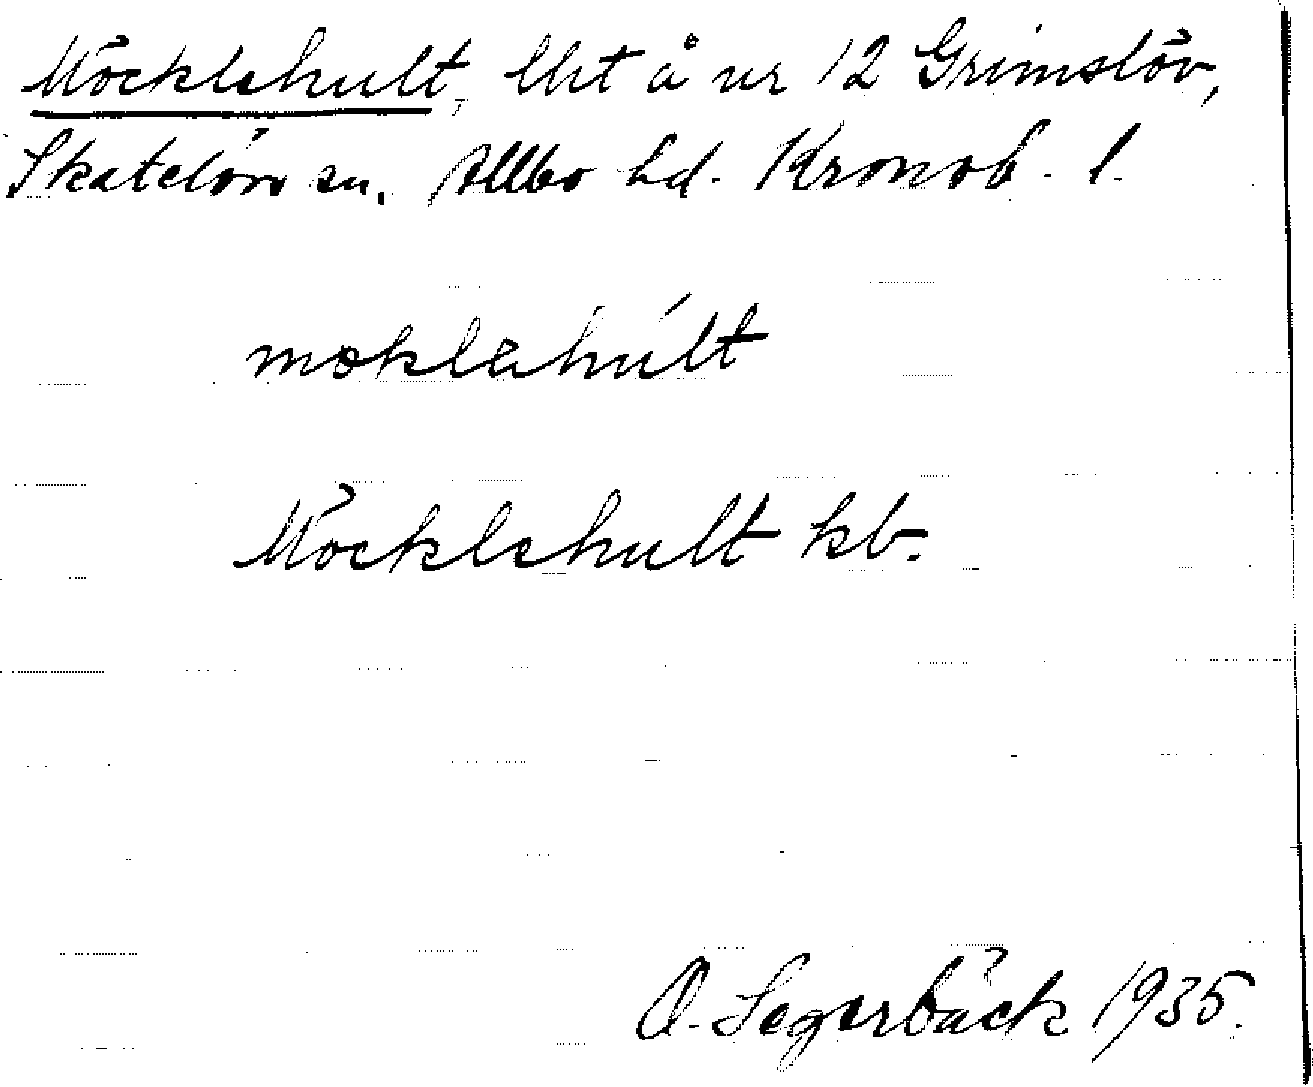 Möcklehult, lht å nr 12 Grimslöv,
Skatelövs sn. Allbo hd. Kronob. l.
møkləhúlt
Möcklehult kb.
O. Segerbäck 1935.